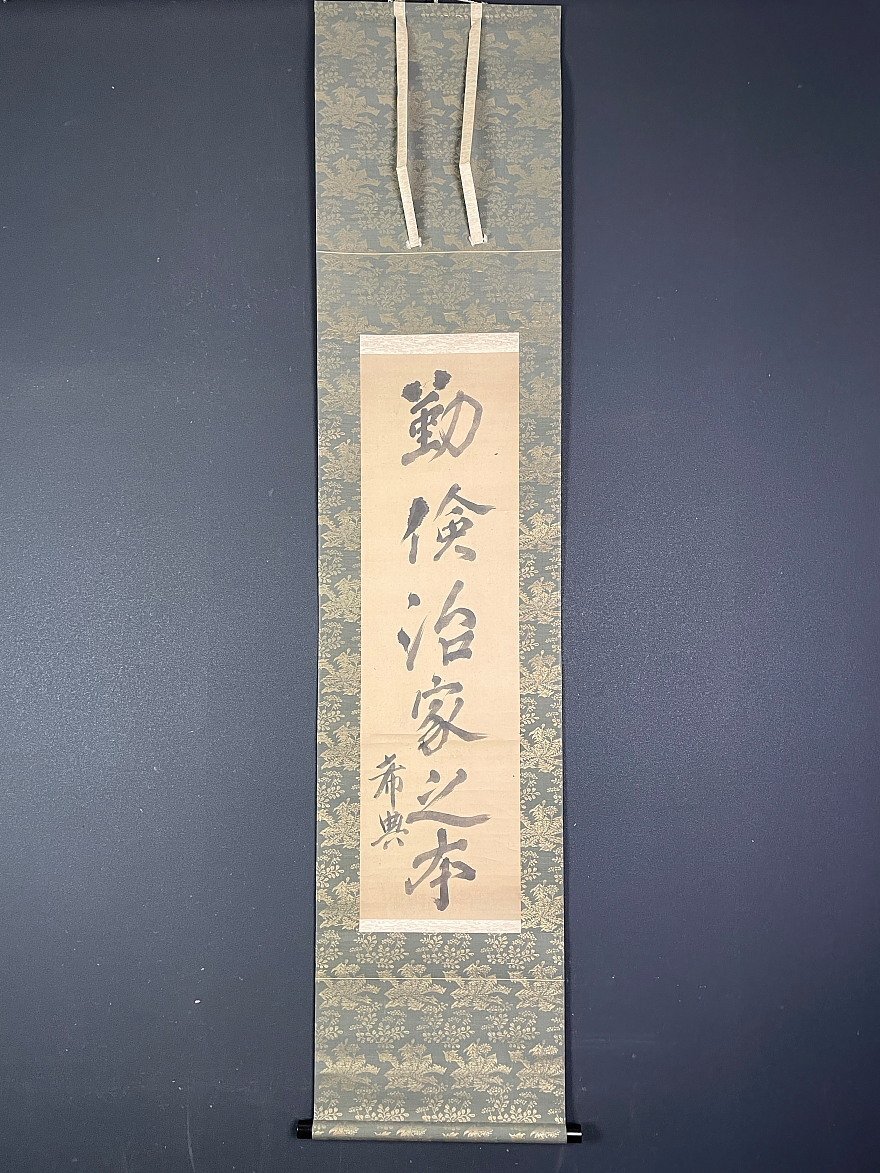 勤倹治家之本
希典